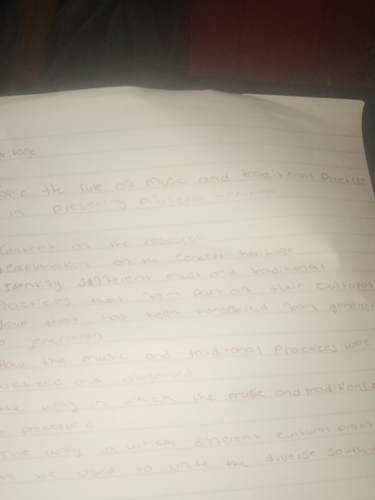 ritage
opic the role of music and traditional Practices
in preserving African heritage
Content of the research
Explanation of the concept heritage
Identity different music and traditional
Practices that form part of their cultural
group that has been transferred from genera
o generation
How the music and traditional Practices were
acticed and observed
the way in which the music and traditions
e preserved
The way in which different cultural pract
n be used to unite the diverse south